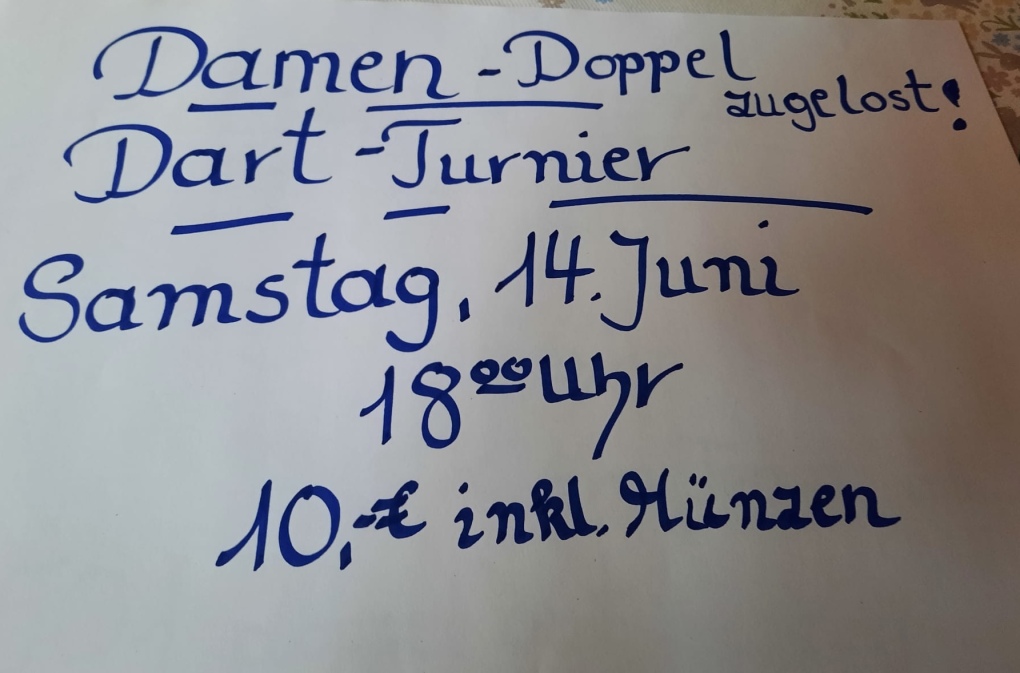 Damen-Doppel
zugelost!
Dart-Turnier
Samstag, 14. Juni
18⁰⁰ Uhr
10,-€ inkl. Münzen